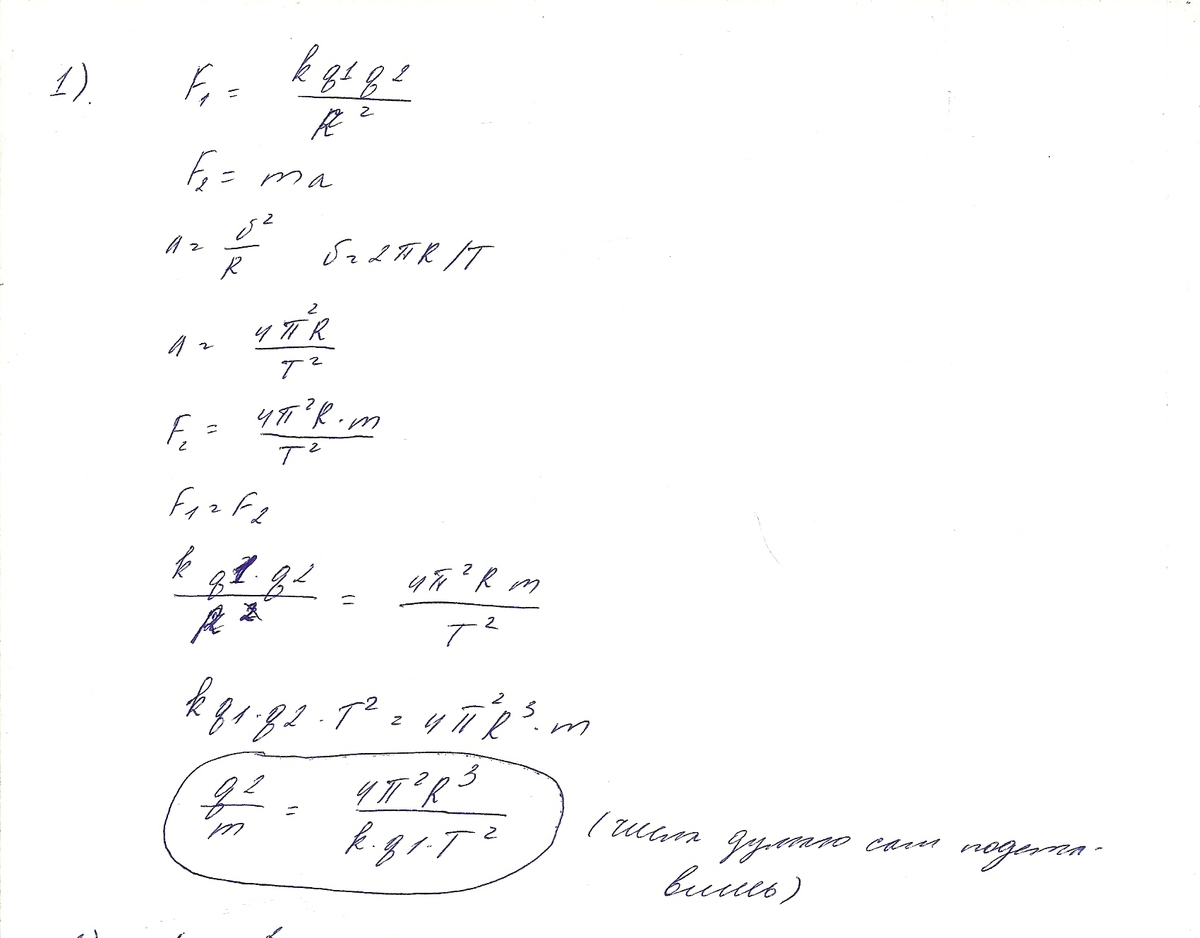 1). F₁ = k q1 q2 / R²
F₂ = ma
a = υ² / R    υ = 2πR/T
a = 4π²R / T²
F₂ = 4π²R·m / T²
F₁ = F₂
k q1·q2 / R² = 4π²R m / T²
k q1·q2·T² = 4π²R³·m
q2 / m = 4π²R³ / k·q1·T²
(числа думаю сам подста-
вишь)